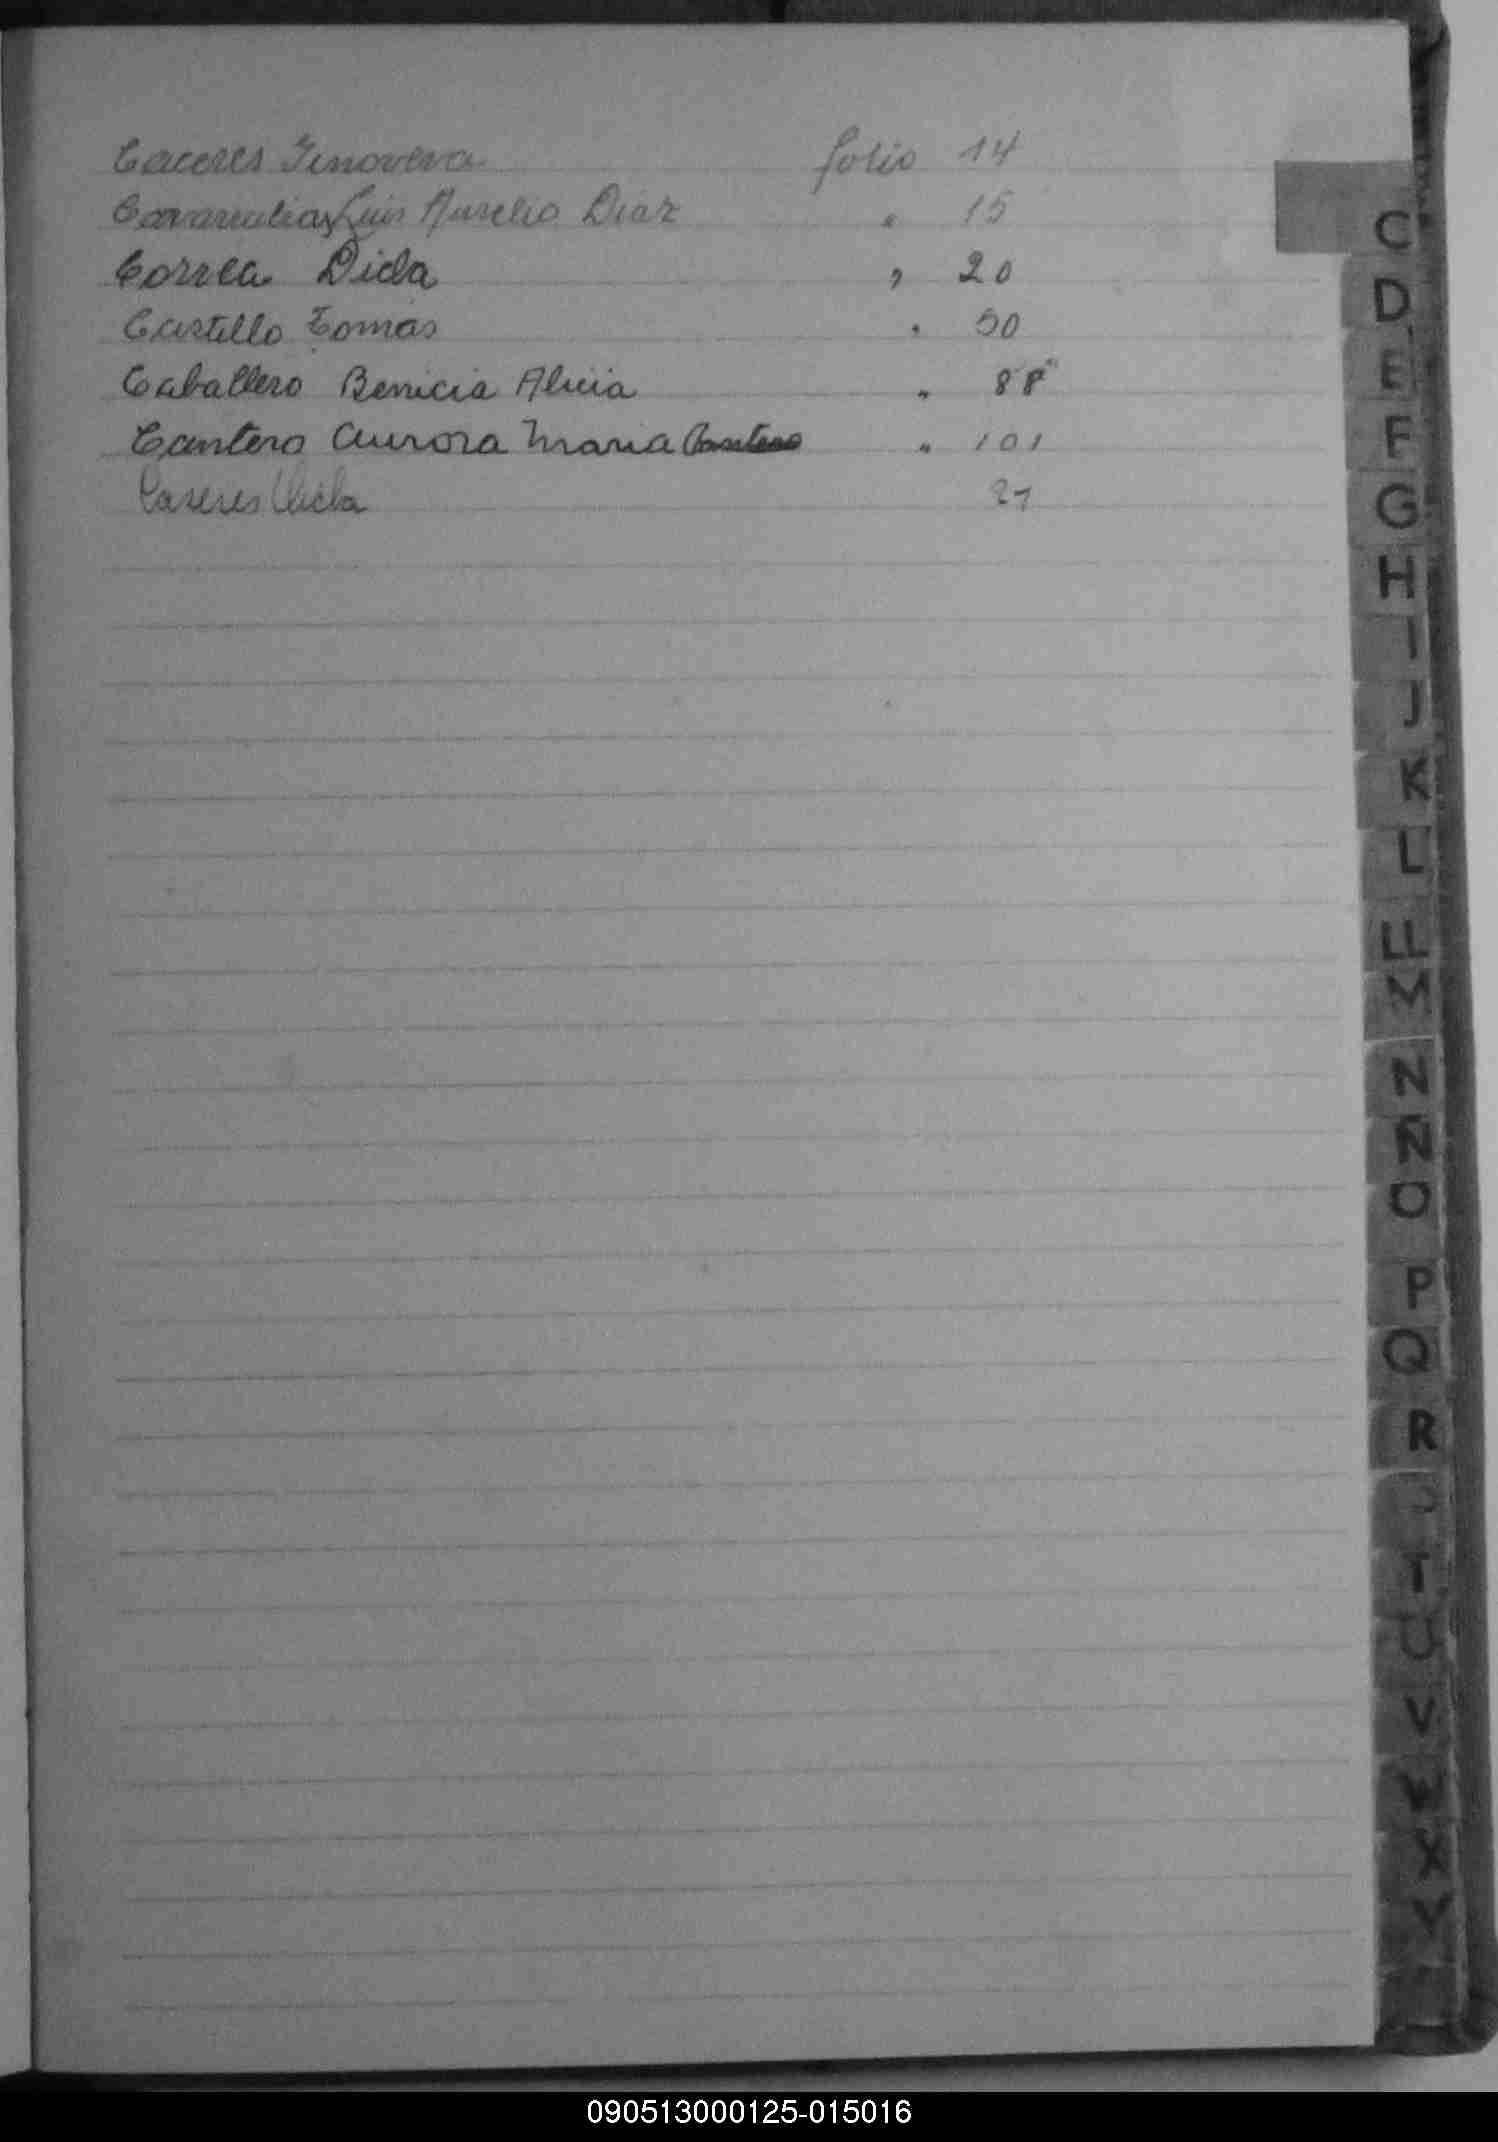 Caceres Genoveva folio 14
Luis Aurelio Diaz " 15
Correa Dicla , 20
Castillo Tomas . 50
Caballero Benicia Alicia " 88
Cantero Aurora Maria Cantero " 101
Caseres Dicla 27
C
D
E
F
G
H
I
J
K
L
LL
M
N
Ñ
O
P
Q
R
S
T
U
V
W
X
Y
090513000125-015016